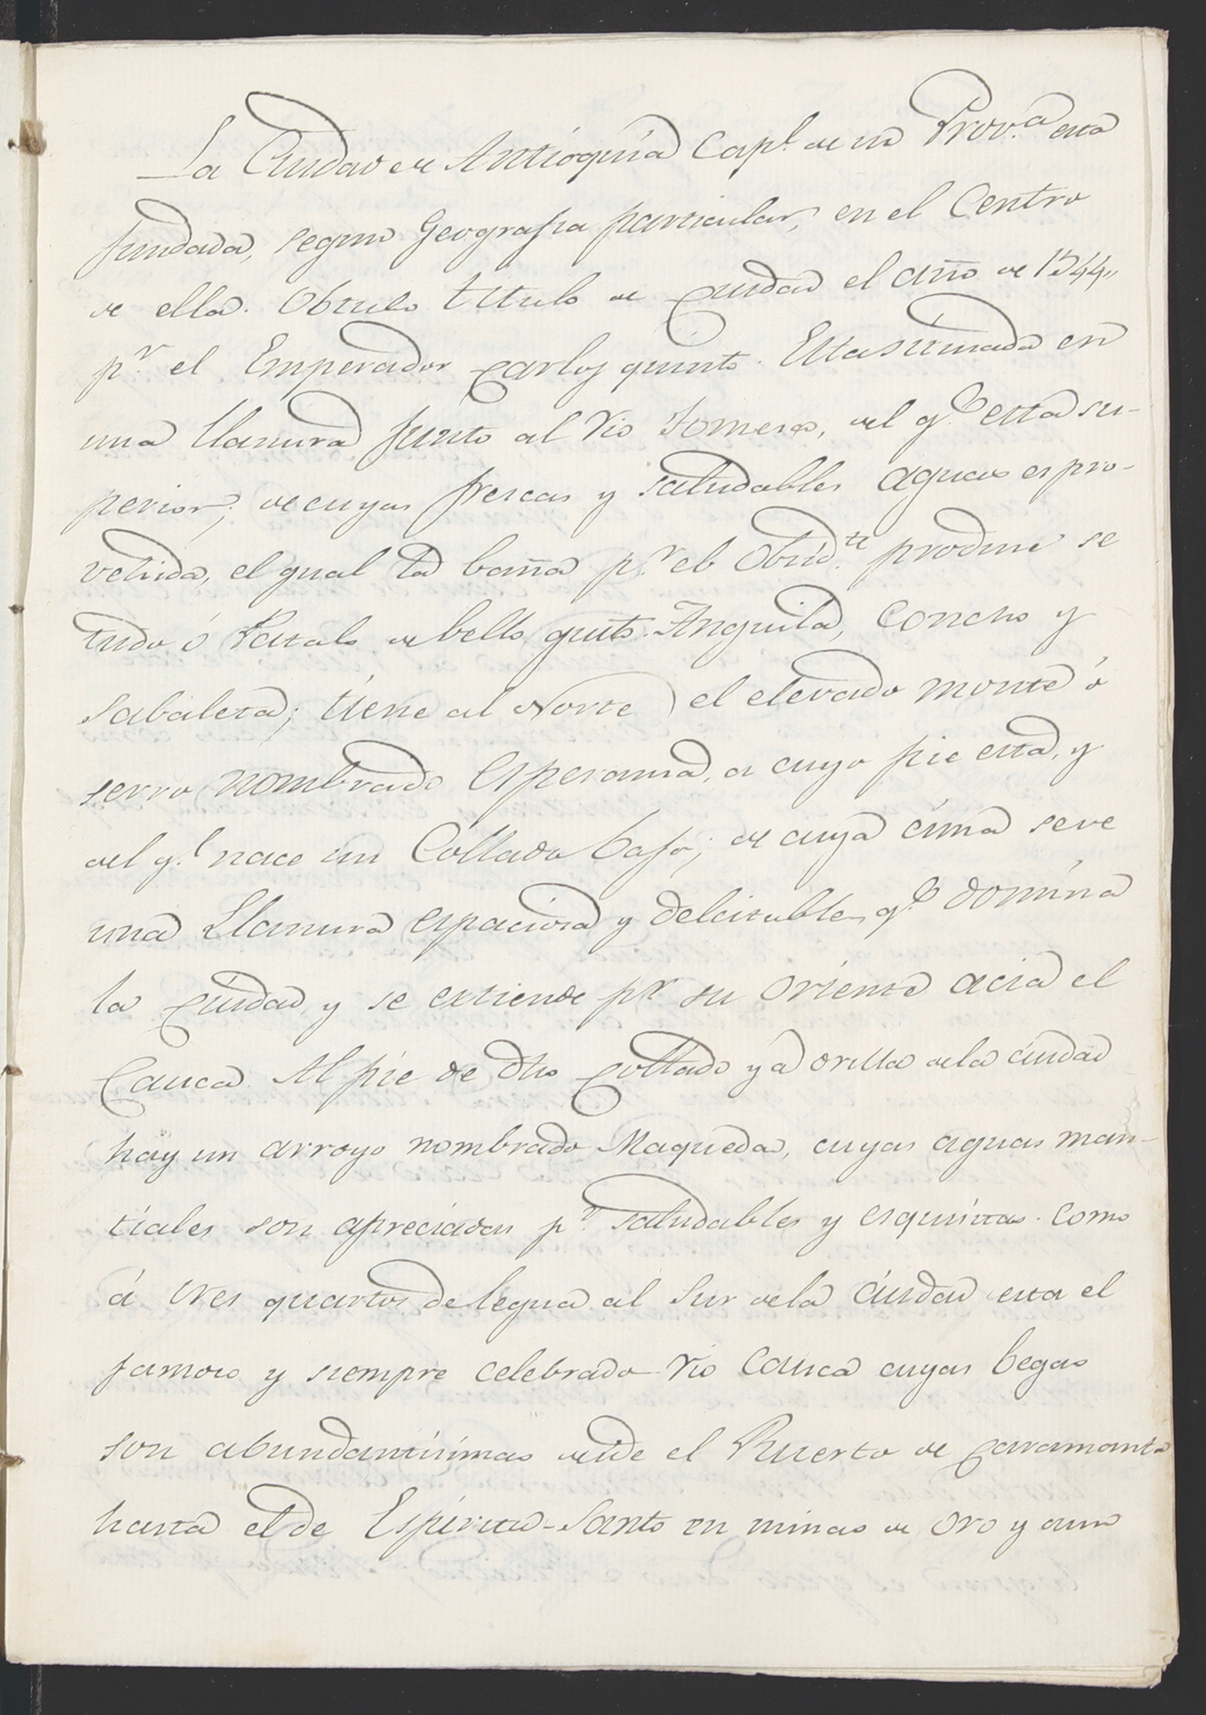 La Ciudad de Antioquia Cap.l de su Prov.a esta
fundada, segun Geografia particular, en el Centro
de ella. Obtubo titulo de Ciudad el año de 1544,,
p.r el Emperador Carlos quinto. Esta situada en
una llanura junto al Rio Tonusco, del q.e esta su-
perior; de cuyas frescas y saludables aguas es pro-
vehida, el qual la baña p.r el Occid.te produce se
tudo ó Patalo de bello gusto Anguila, Concho y
Sabaleta; tiene al Norte el elevado monte ó
serro nombrado Esperanza, a cuyo pie esta, y
del q.l nace un Collado bajo; de cuya cima se ve
una Llanura espaciosa y delcitable, q.e domina
la Ciudad, y se extiende p.r su Oriente acia el
Cauca. Al pie de dho Collado y á orilla de la ciudad
hay un arroyo nombrado Maqueda, cuyas aguas man-
tiales son apreciadas p.r saludables y esquisitas. Como
á tres quartos de legua al Sur de la ciudad esta el
famoso y siempre celebrado Rio Cauca cuyas begas
son abundantisimas desde el Puerto de Caramanta
hasta el de Espiritu-Santo en minas de oro y aun